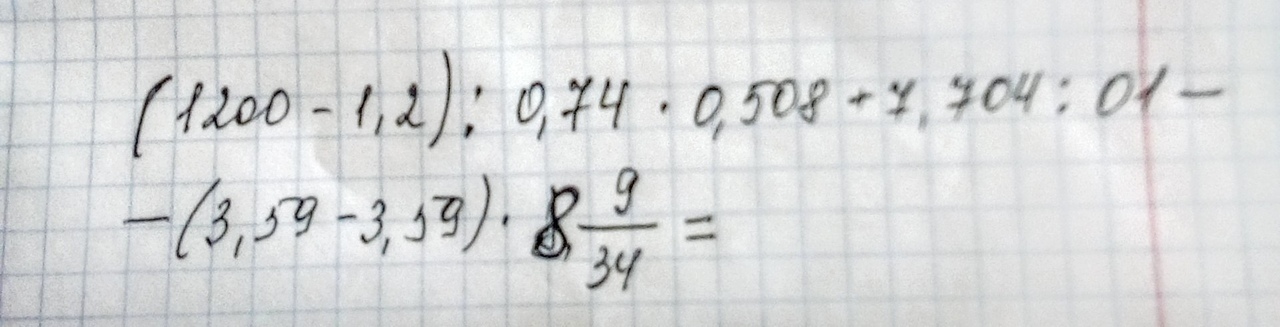 (1200 - 1,2) : 0,74 · 0,508 + 7,704 : 01 -
- (3,59 - 3,59) · 8 9/34 =